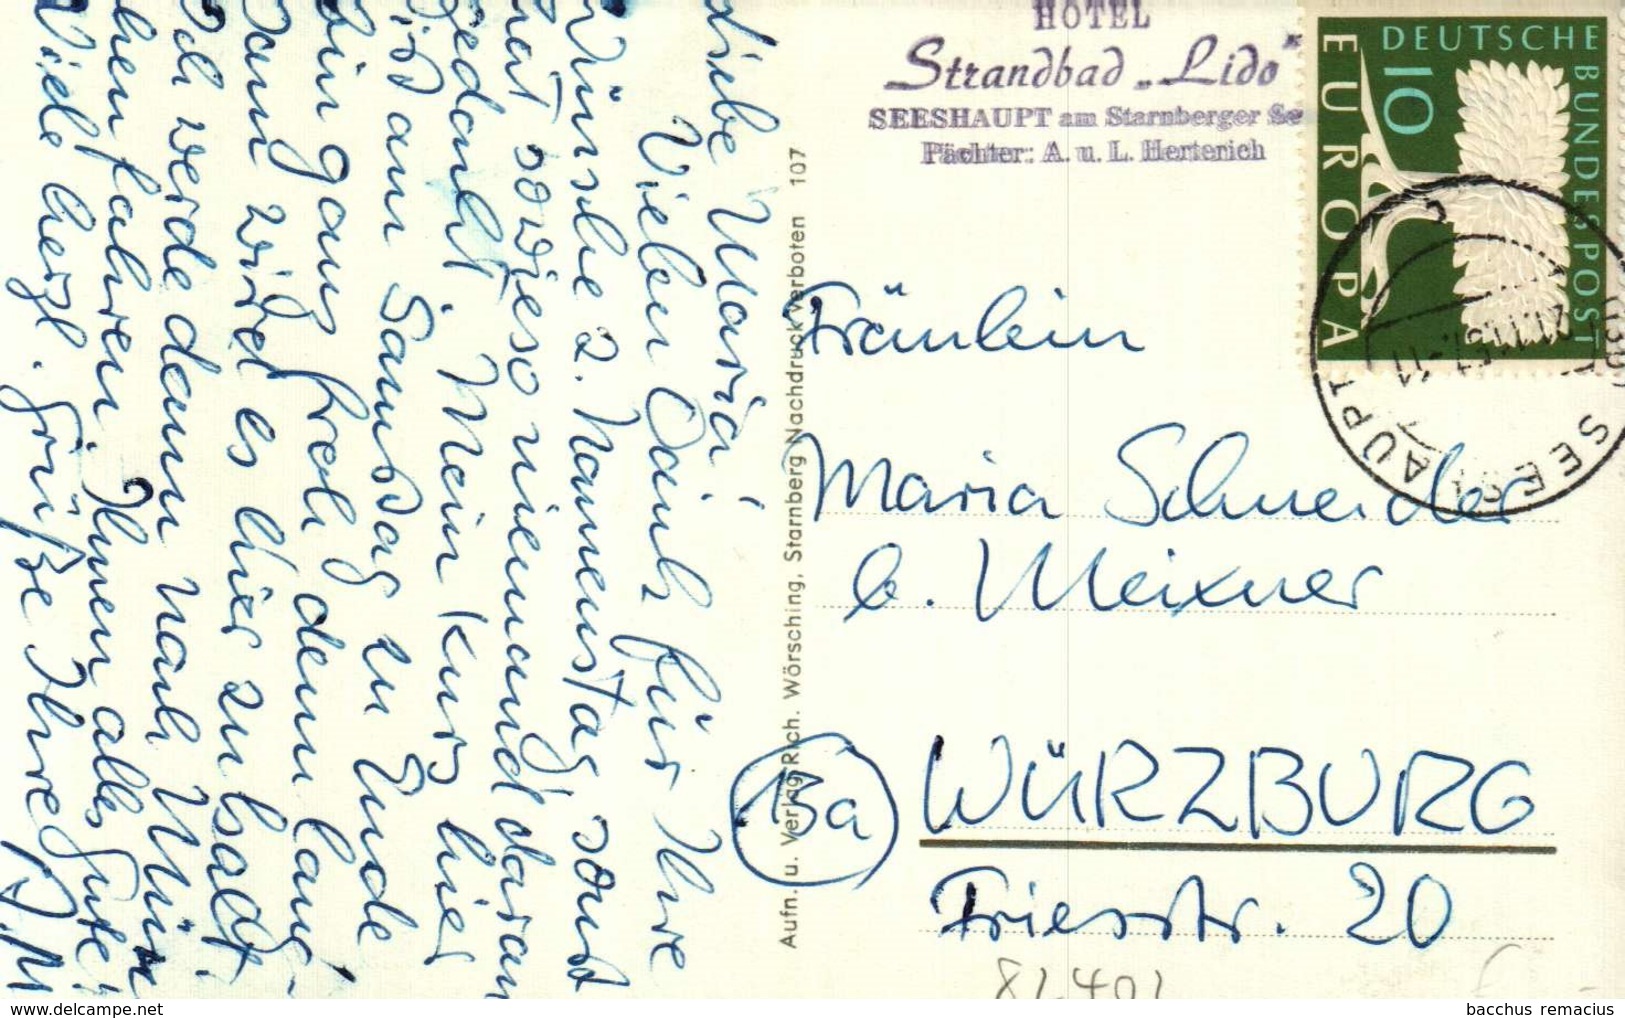 Liebe Maria!
Vielen Dank für Ihre
Wünsche z. Namenstag, sonst
hat sowieso niemand daran
gedacht. Mein Kurs hier
ist am Samstag zu Ende
bin ganz froh denn lang-
sam wird es hier zu kalt.
Ich werde dann nach Mün-
chen fahren. Ihnen alles Gute!
Viele herzl. Grüße Ihre
Aufn. u. Verlag Rich. Wörsching, Starnberg Nachdruck verboten 107
HOTEL
Strandbad „Lido"
SEESHAUPT am Starnberger See
Pächter: A. u. L. Herterich
DEUTSCHE BUNDESPOST
10
EUROPA
SEESHAUPT
21.11.57.-11
Fräulein
Maria Schneider
b. Meixner
13a
WÜRZBURG
Friesstr. 20
82401
bacchus remacius